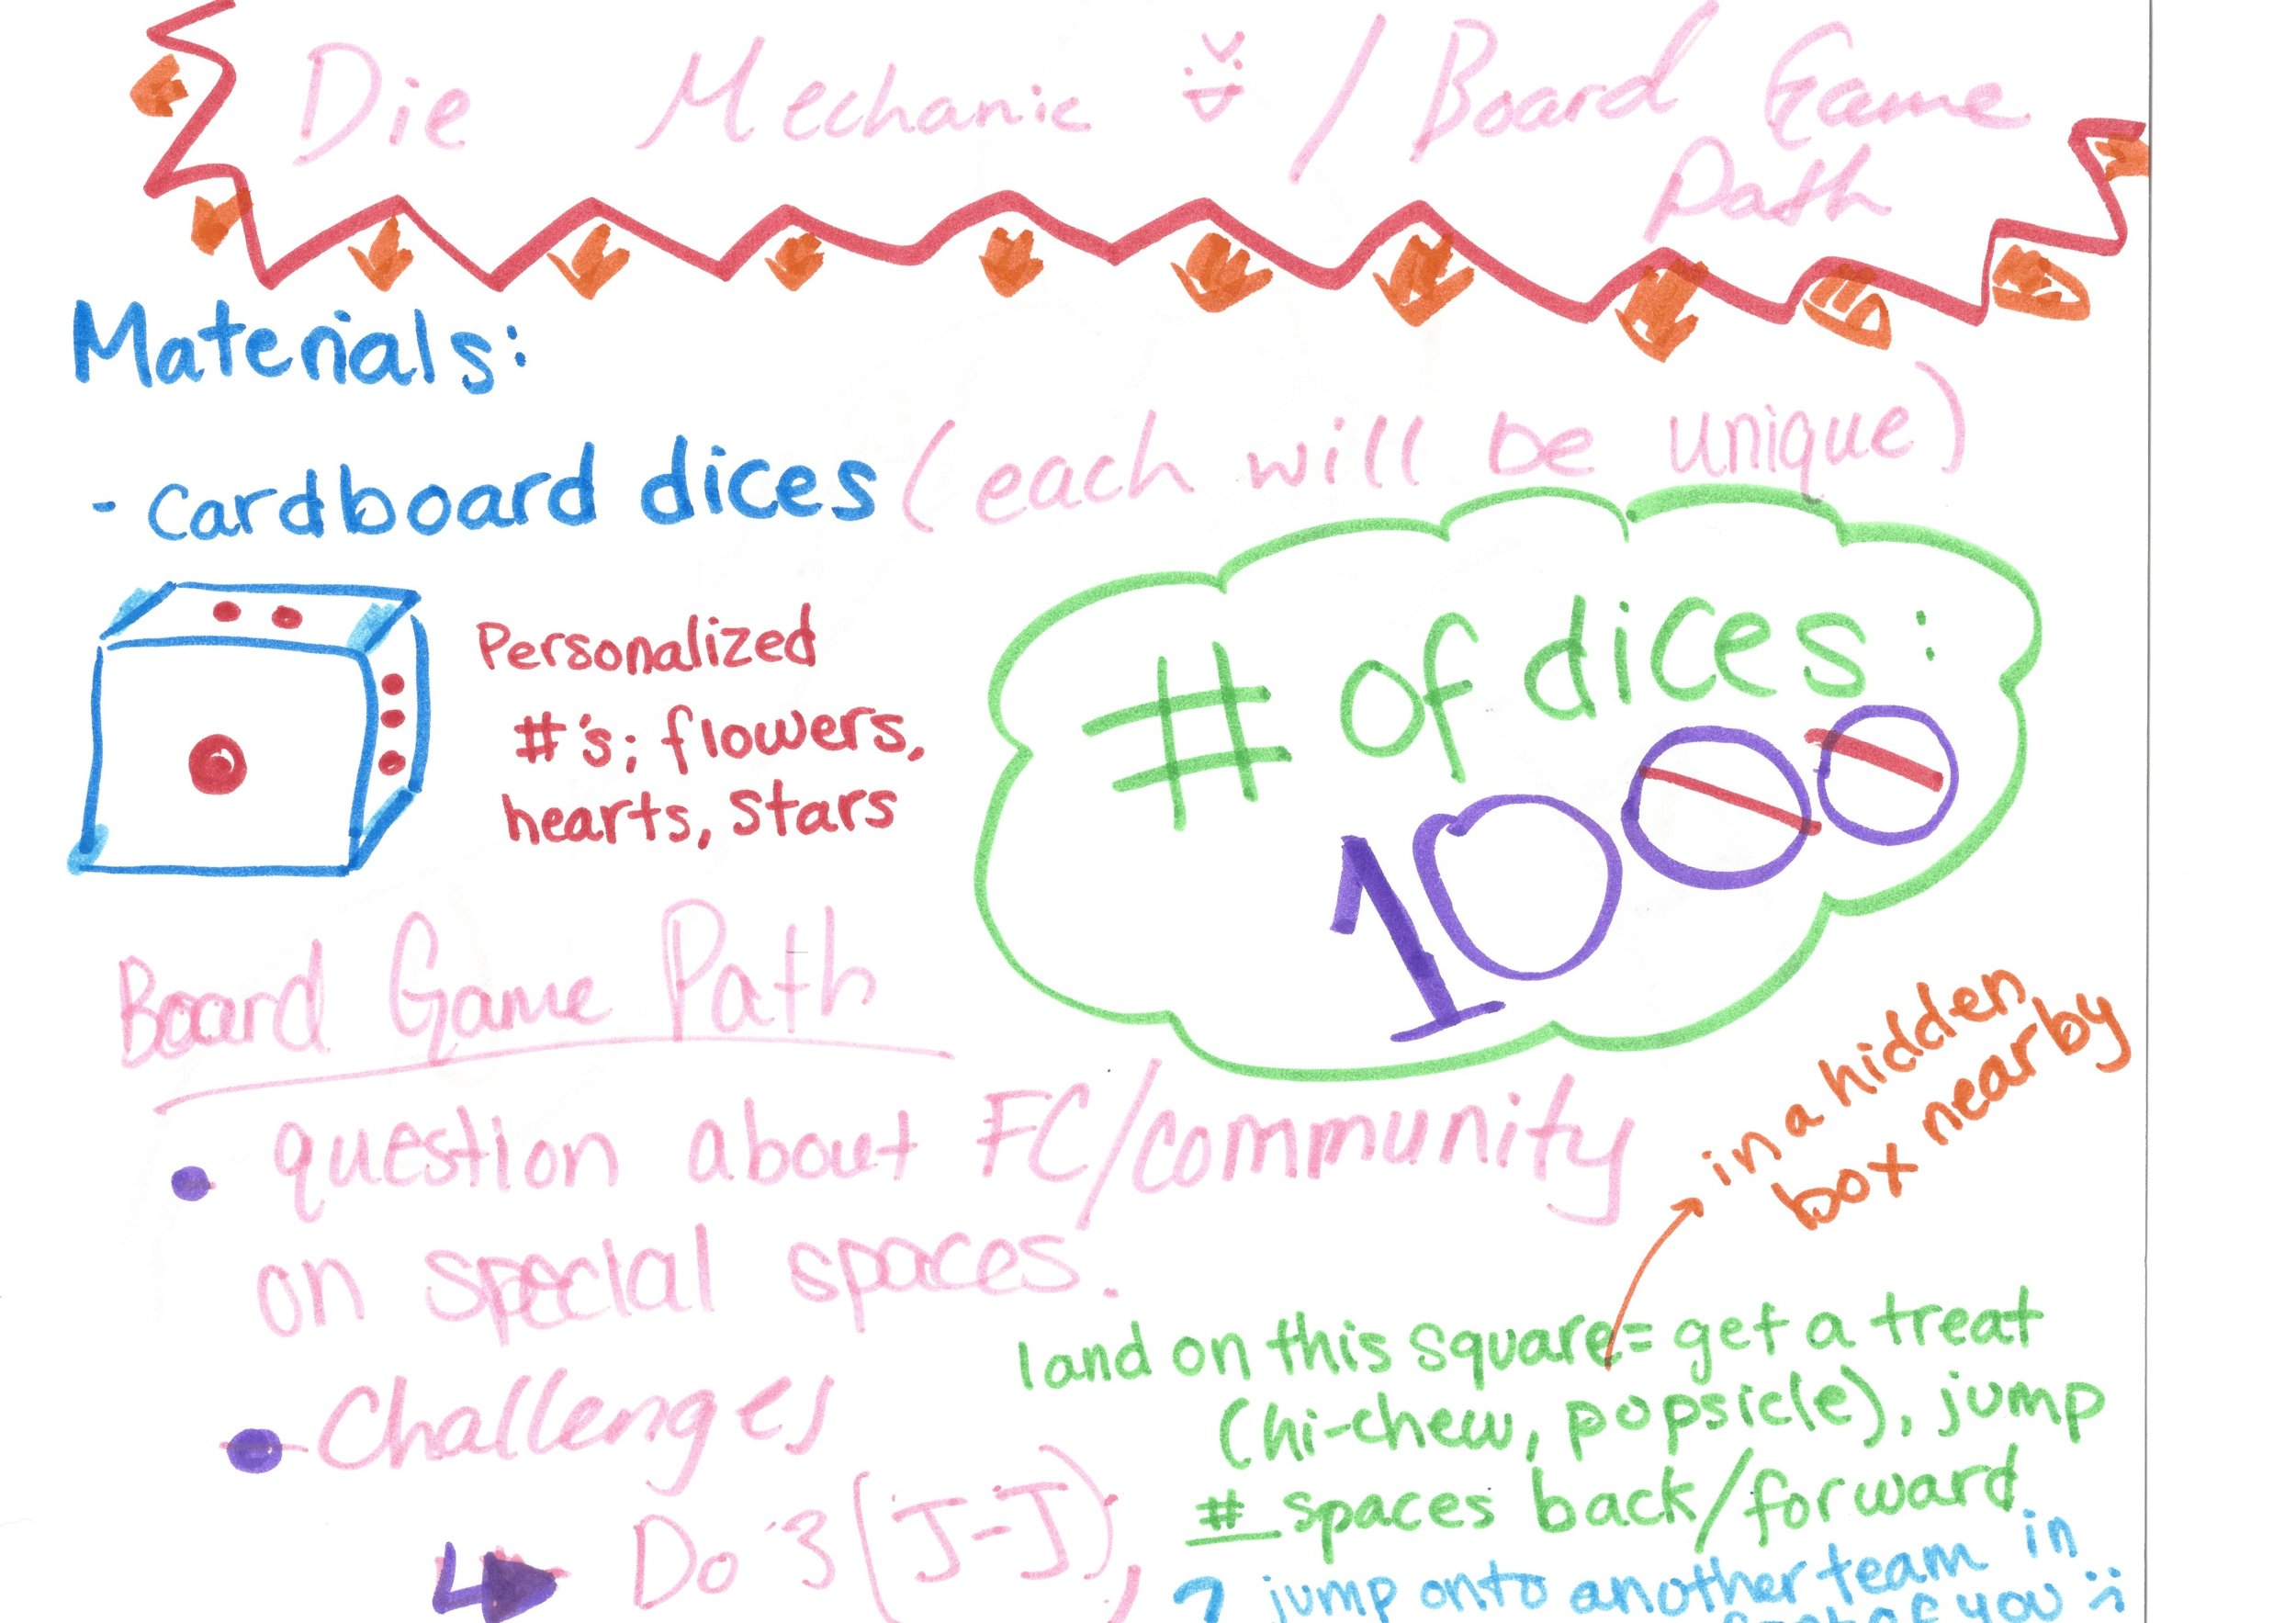 Die Mechanic / Board Game
Path
Materials:
- cardboard dices (each will be unique)
Personalized
#'s; flowers,
hearts, stars
# of dices:
1000
Board Game Path
in a hidden
box nearby
• question about FC/community
on special spaces.
• Challenges
Do 3 (J-J),
land on this square= get a treat
(hi-chew, popsicle), jump
# spaces back/forward
jump onto another team in
front of you :)